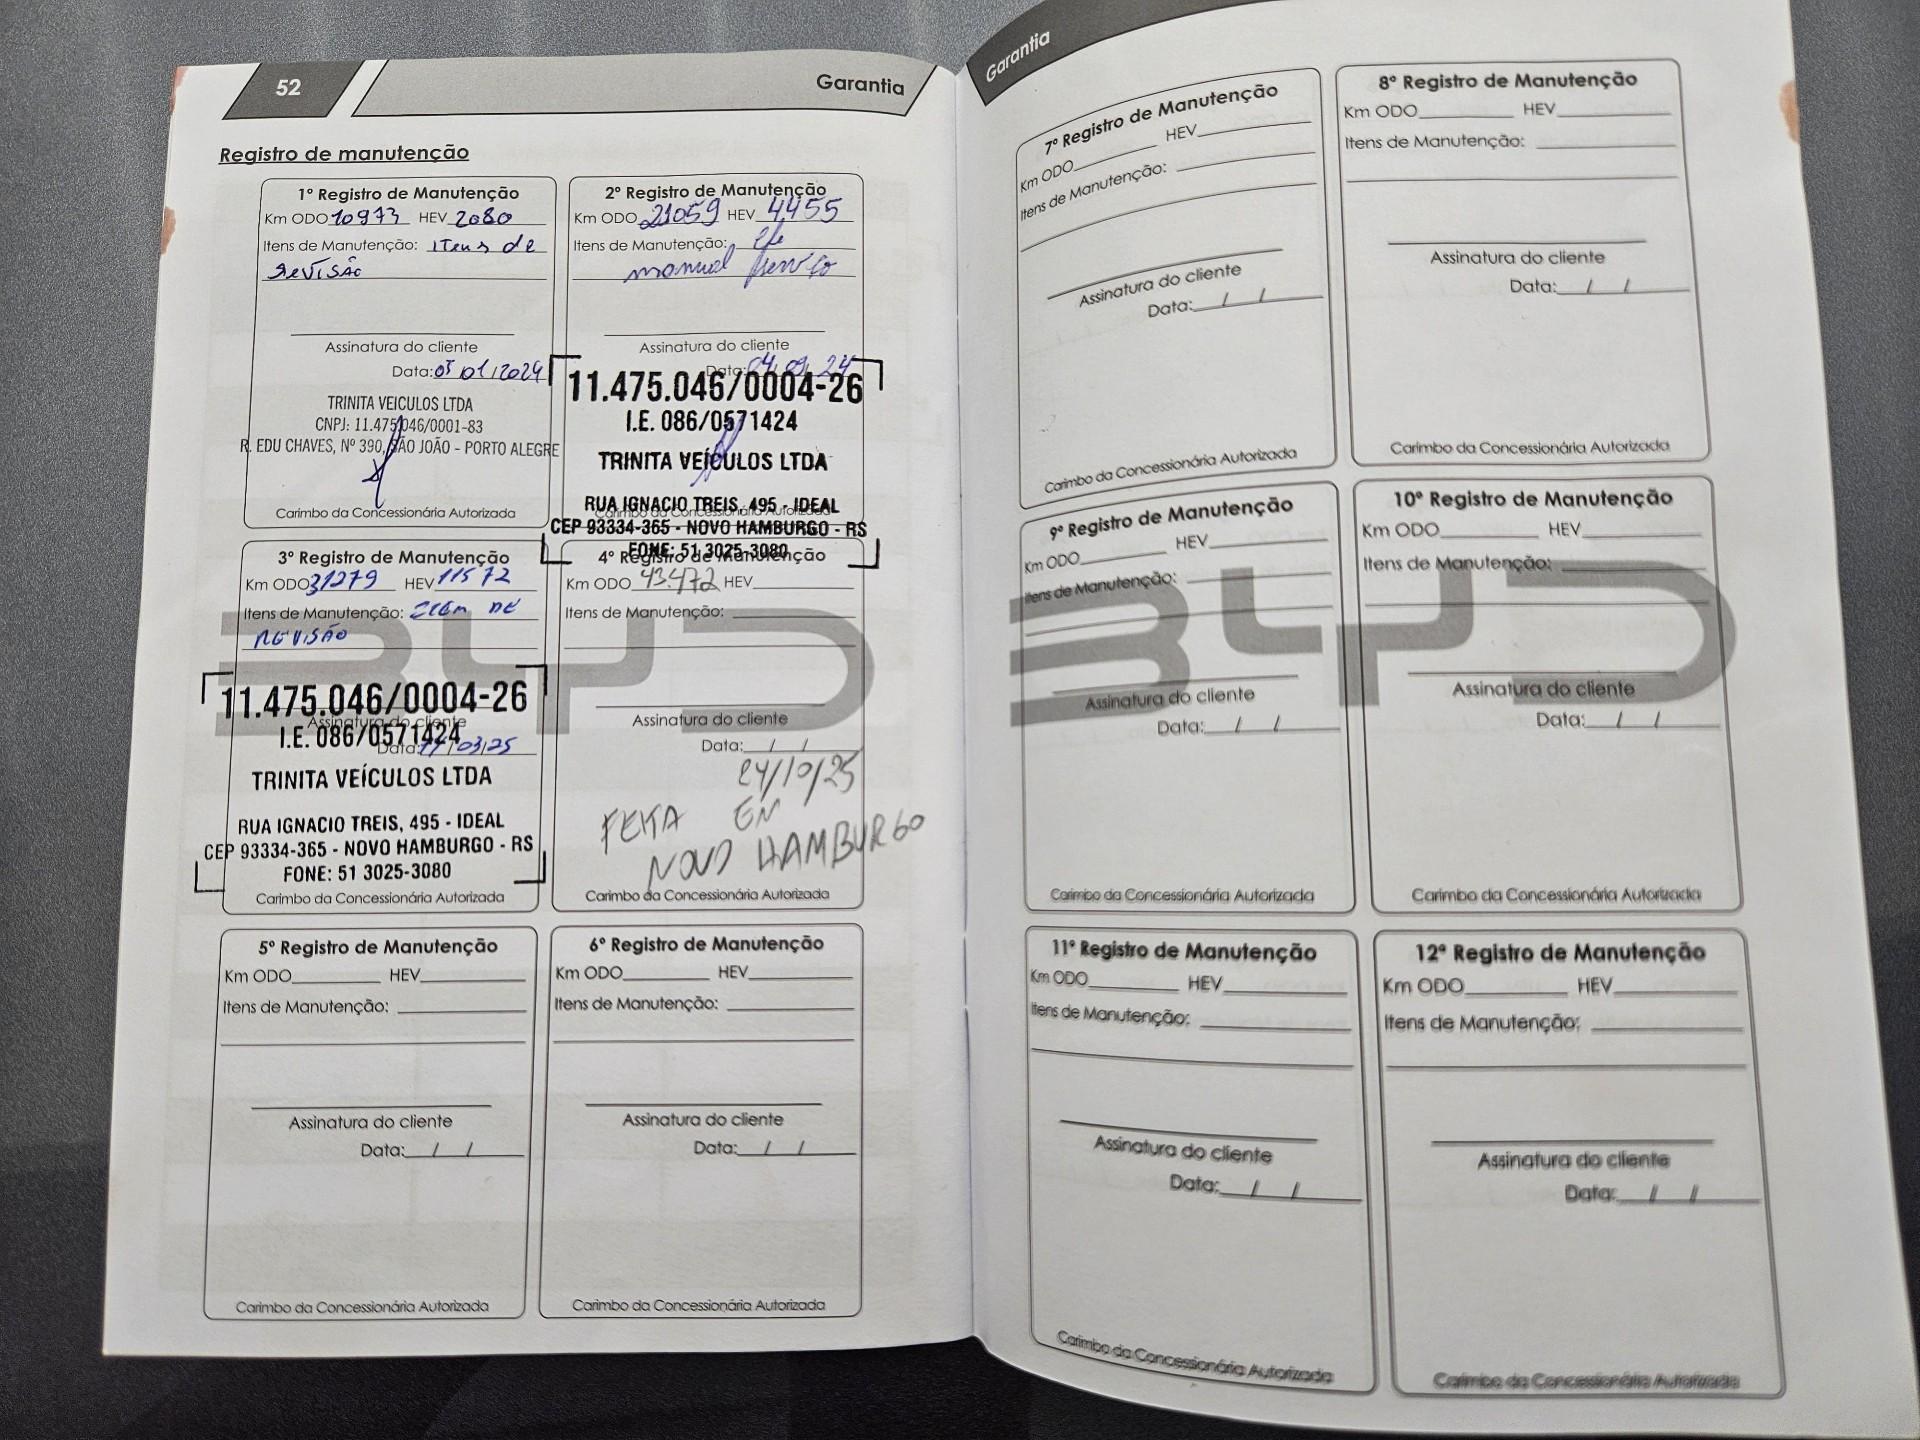 52
Garantia
Registro de manutenção
1º Registro de Manutenção
Km ODO 10973 HEV 2080
Itens de Manutenção: ITens de
ReVISÃO
Assinatura do cliente
Data: 05/01/2024
TRINITA VEICULOS LTDA
CNPJ: 11.475.046/0001-83
R. EDU CHAVES, Nº 390, SÃO JOÃO - PORTO ALEGRE
Carimbo da Concessionária Autorizada
2º Registro de Manutenção
Km ODO 21059 HEV 4455
Itens de Manutenção:
manual
Assinatura do cliente
Data: 04/09/24
11.475.046/0004-26
I.E. 086/0571424
TRINITA VEÍCULOS LTDA
RUA IGNACIO TREIS, 495 - IDEAL
Carimbo da Concessionária Autorizada
CEP 93334-365 - NOVO HAMBURGO - RS
FONE: 51 3025-3080
3º Registro de Manutenção
Km ODO 31279 HEV 11572
Itens de Manutenção: DE
REVISÃO
11.475.046/0004-26
Assinatura do cliente
I.E. 086/0571424
Data: /03/25
TRINITA VEÍCULOS LTDA
RUA IGNACIO TREIS, 495 - IDEAL
CEP 93334-365 - NOVO HAMBURGO - RS
FONE: 51 3025-3080
Carimbo da Concessionária Autorizada
4º Registro de Manutenção
Km ODO 43.472 HEV
Itens de Manutenção:
Assinatura do cliente
Data: / /
24/10/25
FEITA EM
NOVO HAMBURGO
Carimbo da Concessionária Autorizada
BYD
5º Registro de Manutenção
Km ODO HEV
Itens de Manutenção:
Assinatura do cliente
Data: / /
Carimbo da Concessionária Autorizada
6º Registro de Manutenção
Km ODO HEV
Itens de Manutenção:
Assinatura do cliente
Data: / /
Carimbo da Concessionária Autorizada
Garantia
7º Registro de Manutenção
Km ODO HEV
Itens de Manutenção:
Assinatura do cliente
Data: / /
Carimbo da Concessionária Autorizada
8º Registro de Manutenção
Km ODO HEV
Itens de Manutenção:
Assinatura do cliente
Data: / /
Carimbo da Concessionária Autorizada
9º Registro de Manutenção
Km ODO HEV
Itens de Manutenção:
Assinatura do cliente
Data: / /
Carimbo da Concessionária Autorizada
10º Registro de Manutenção
Km ODO HEV
Itens de Manutenção:
Assinatura do cliente
Data: / /
Carimbo da Concessionária Autorizada
BYD
11º Registro de Manutenção
Km ODO HEV
Itens de Manutenção:
Assinatura do cliente
Data: / /
Carimbo da Concessionária Autorizada
12º Registro de Manutenção
Km ODO HEV
Itens de Manutenção:
Assinatura do cliente
Data: / /
Carimbo da Concessionária Autorizada